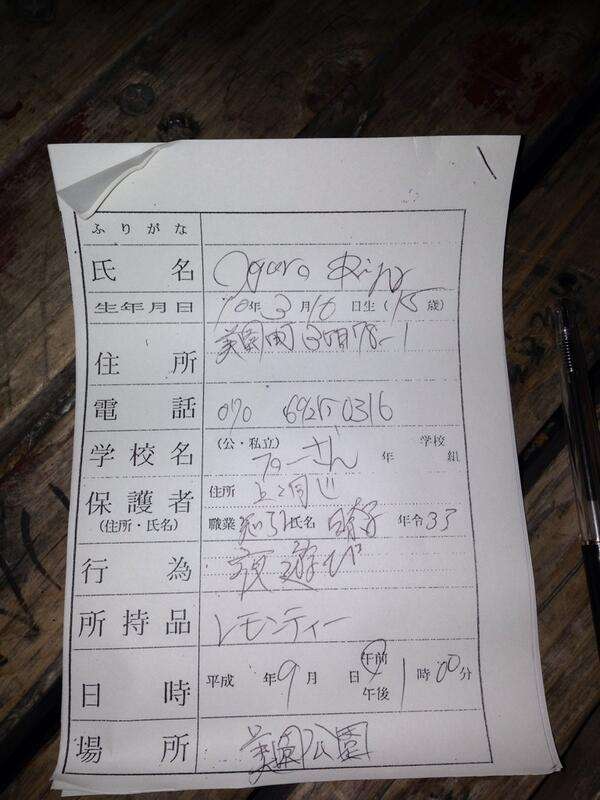 ふりがな
氏名 Oguro
生年月日 10年3月16日生(15歳)
住所 美園町3丁目78-1
電話 070 6925 0316
学校名 (公・私立) 学校 年 組
保護者 (住所・氏名) 住所 上と同じ
職業 氏名 年令33
行為 夜遊び
所持品 レモンティー
日時 平成 年9月 日 午前 午後 1時00分
場所 美園公園